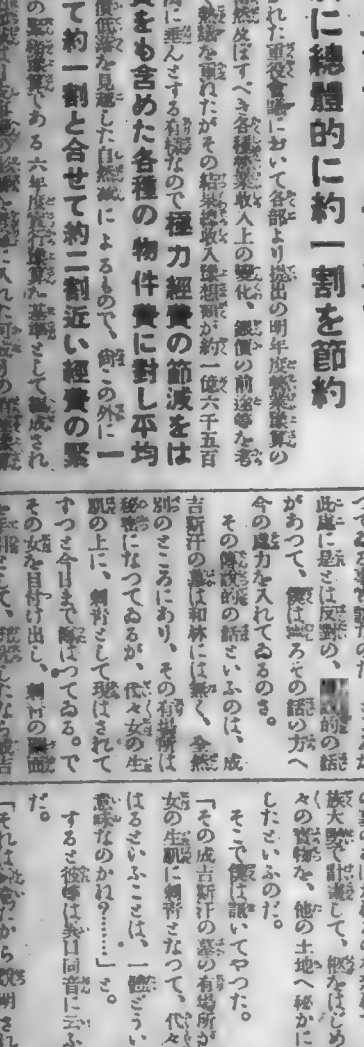 に總體的に約一割を節約
れた重役會議において各部より提出の明年度營業豫算の
然及ぼすべき各種營業收入上の變化、銀價の前途等を考
熟議を重ねたがその結果總收入豫想額が約一億六千五百
に垂んとする有樣なので極力經費の節減をは
費をも含めた各種の物件費に對し平均
價低落を見越した自然減によるもので、尚この外に一
て約一割と合せて約二割近い經費の緊
豫算である六年度實行豫算を基準として編成され
に入れた
此處に是とは反對の、的の話
があつて、僕は寧ろその話の方へ
今の處力を入れてゐるのさ。
その傳說的の話といふのは、成
吉斯汗の墓は和林には無く、全然
別のところにあり、その有場所は
秘密になつてゐるが、代々女の生
肌の上に、刺青として現はされて
ずつと今日まで傳はつてゐる。で
その女を目付け出し、刺青の圖面
を手
族大擧で計畫して、柩をはじめ
々の寶物を、他の土地へ秘かに
したといふのだ。
そこで僕は訊いてやつた。
「その成吉斯汗の墓の有場所が
女の生肌に刺青となつて、代々
はるといふことは、一體どうい
意味なのかね？……」と。
すると彼等は異口同音に云ふ
だ。
「それは
だから說明され